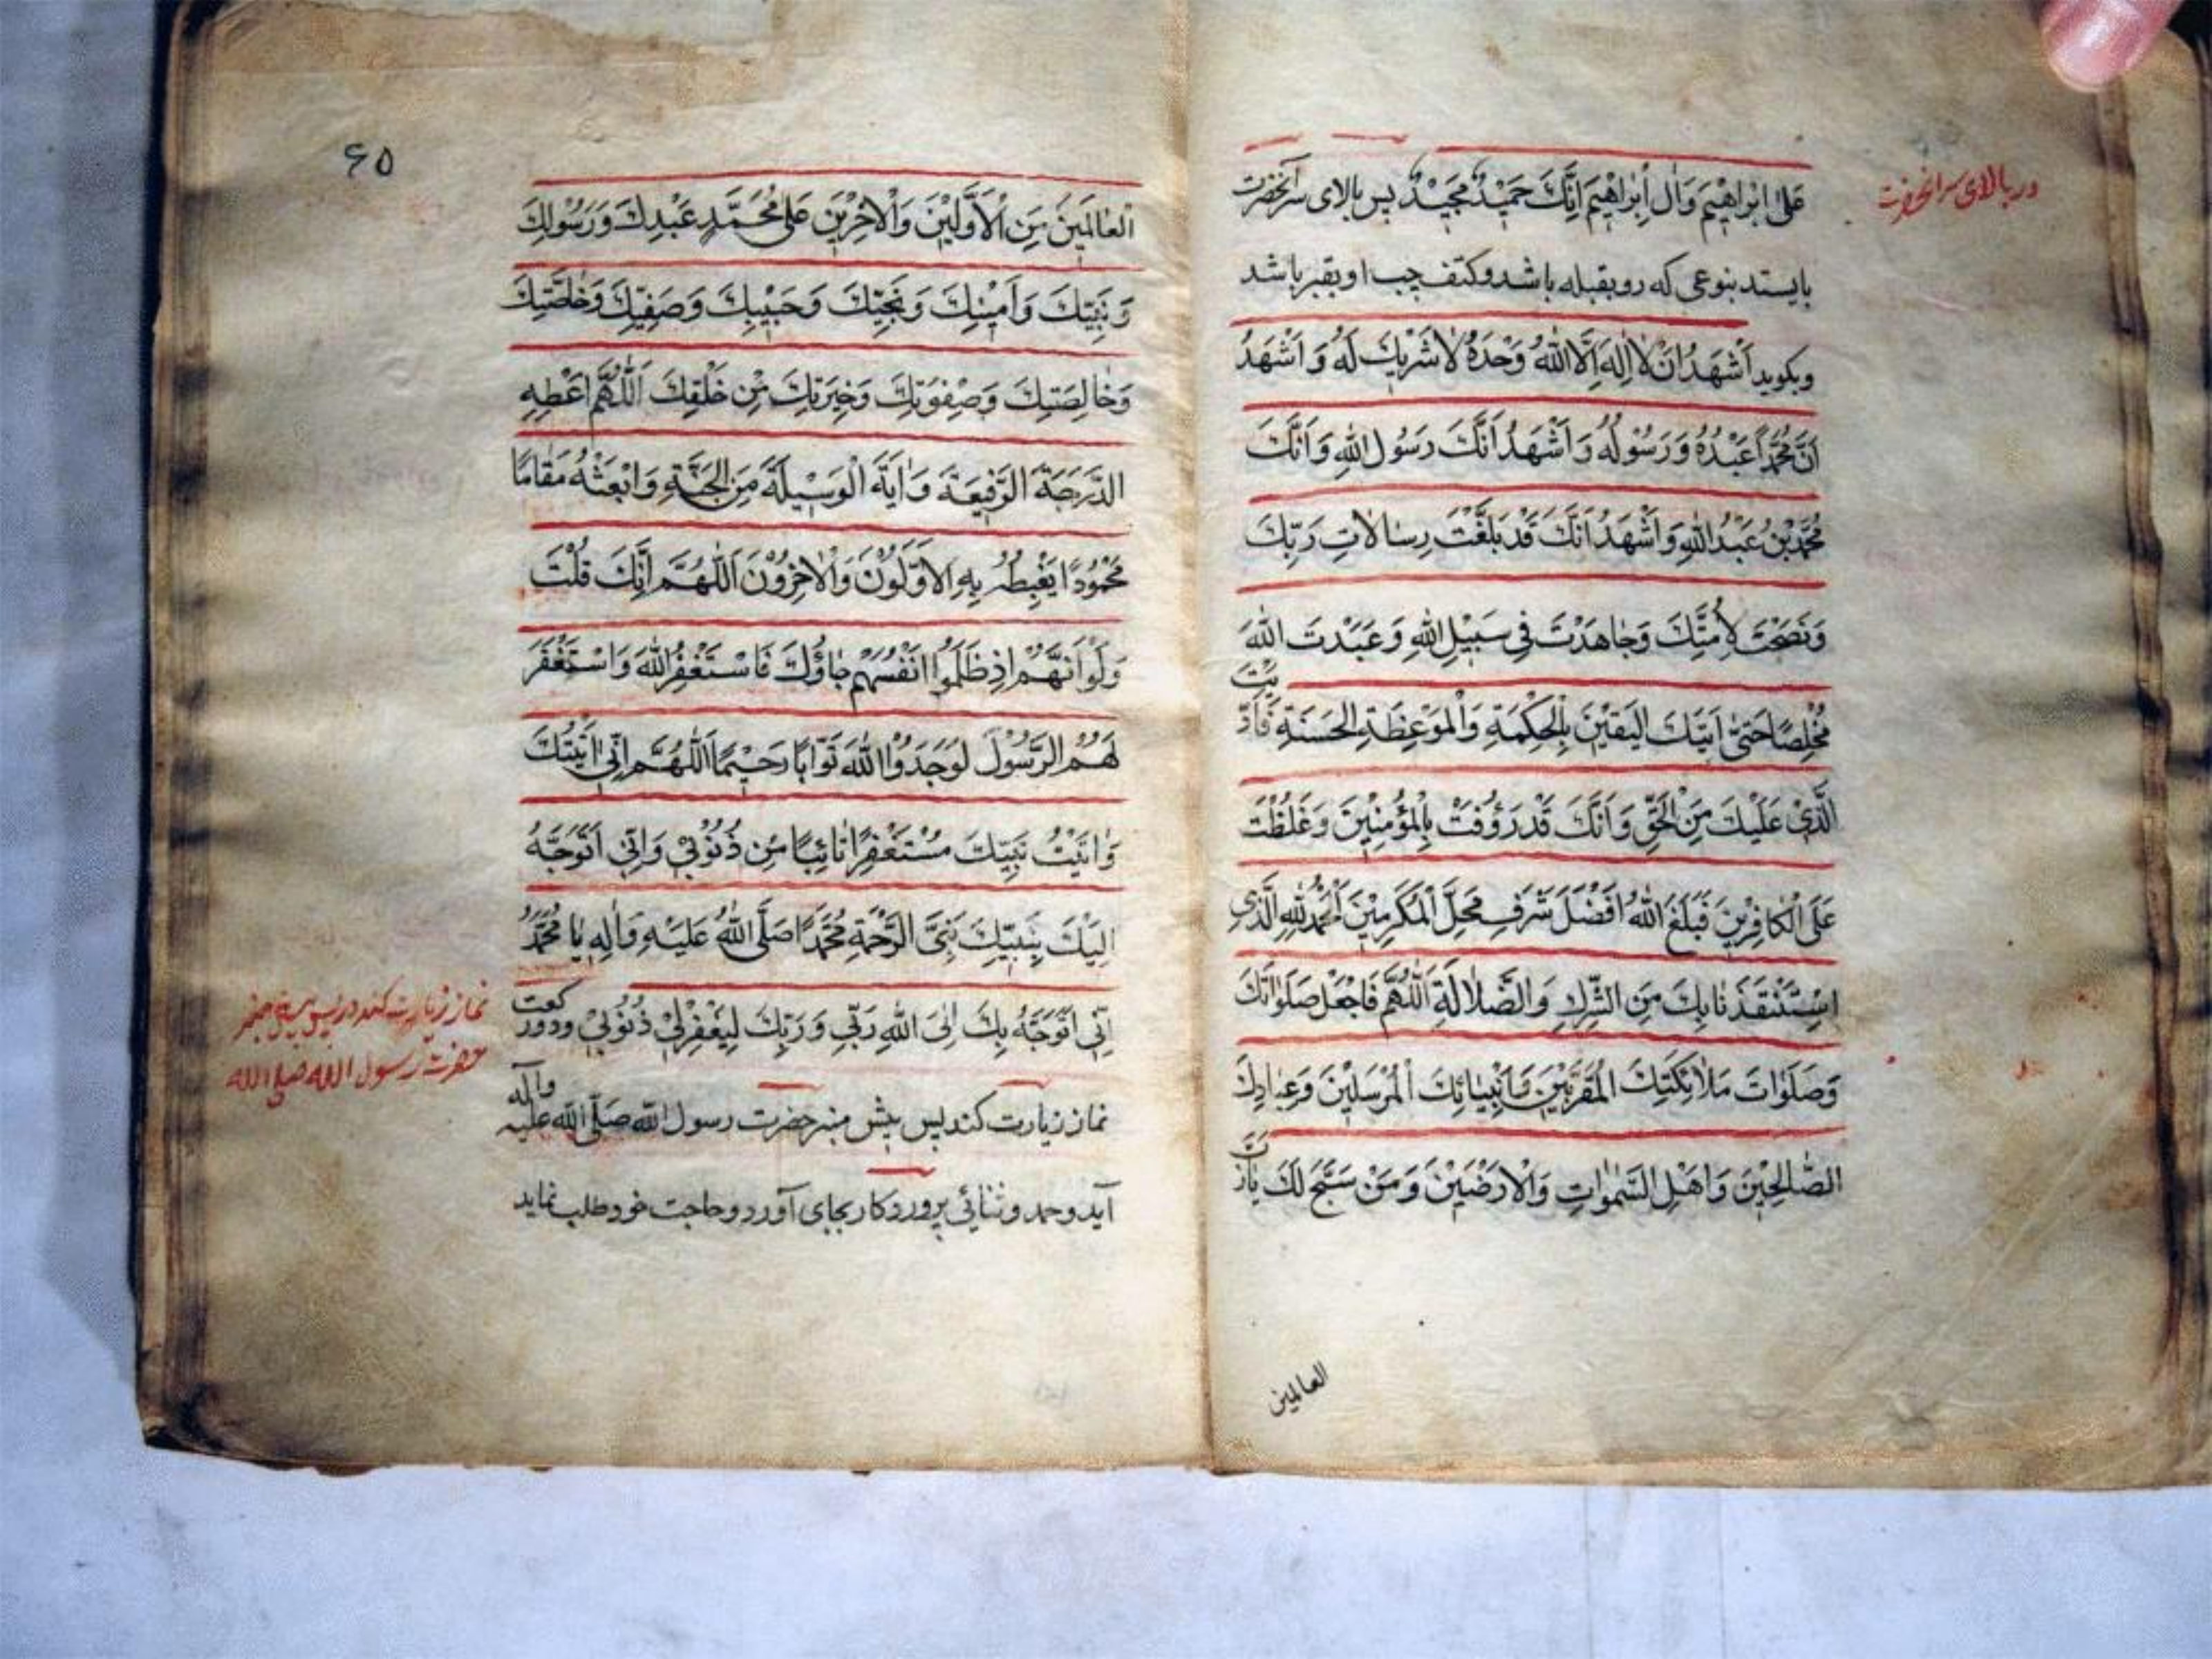 در بالای سر آنحضرت
عَلىٰ اِبْراهِيمَ وَاٰلِ اِبْراهِيمَ اِنَّكَ حَمِيْدٌ مَجِيْدٌ پس بالای سر آنحضرت
بایستد بنوعی که رو بقبله باشد و کتف چپ او بقبر باشد
وبکوید اَشْهَدُ اَنْ لٰا اِلٰهَ اِلَّا اللهُ وَحْدَهُ لٰا شَرِيكَ لَهُ وَ اَشْهَدُ
اَنَّ مُحَمَّداً عَبْدُهُ وَ رَسُوْلُهُ وَ اَشْهَدُ اَنَّكَ رَسُولُ اللهِ وَ اَنَّكَ
مُحَمَّدُ بْنُ عَبْدِ اللهِ وَ اَشْهَدُ اَنَّكَ قَدْ بَلَّغْتَ رِسٰالٰاتِ رَبِّكَ
وَنَصَحْتَ لِاُمَّتِكَ وَجٰاهَدْتَ فِي سَبِيْلِ اللهِ وَ عَبَدْتَ اللهَ
مُخْلِصًا حَتىّٰ اَتٰيكَ الْيَقِيْنَ بِالْحِكْمَةِ وَالْمَوْعِظَةِ الْحَسَنَةِ فَاَدَّيْتَ
الَّذِيْ عَلَيْكَ مِنَ الْحَقِّ وَ اَنَّكَ قَدْ رَؤُفْتَ بِالْمُؤْمِنِيْنَ وَ غَلُظْتَ
عَلَى الْكٰافِرِيْنَ فَبَلَغَ اللهُ اَفْضَلَ شَرَفِ مَحَلِّ الْمُكَرَّمِيْنَ اَلْحَمْدُ لِلّٰهِ الَّذِي
اسْتَنْقَذَنٰا بِكَ مِنَ الشِّرْكِ وَ الضَّلٰالَةِ اَللّٰهُمَّ فَاجْعَلْ صَلَوٰاتَكَ
وَصَلَوٰاتَ مَلٰائِكَتِكَ الْمُقَرَّبِيْنَ وَاَنْبِيٰائِكَ الْمُرْسَلِيْنَ وَعِبٰادِكَ
الصّٰالِحِيْنَ وَ اَهْلِ السَّمٰوٰاتِ وَالْاَرَضِيْنَ وَ مَنْ سَبَّحَ لَكَ يٰا رَبَّ
العالمین
۶۵
الْعٰالَمِيْنَ مِنَ الْاَوَّلِيْنَ وَالْاٰخِرِيْنَ عَلىٰ مُحَمَّدٍ عَبْدِكَ وَ رَسُولِكَ
وَ نَبِيِّكَ وَ اَمِيْنِكَ وَ نَجِيِّكَ وَ حَبِيْبِكَ وَ صَفِيِّكَ وَخٰاصَّتِكَ
وَخٰالِصَتِكَ وَصِفْوَتِكَ وَخِيَرَتِكَ مِنْ خَلْقِكَ اَللّٰهُمَّ اَعْطِهِ
الدَّرَجَةَ الرَّفِيعَةَ وَ اٰتِهِ الْوَسِيْلَةَ مِنَ الْجَنَّةِ وَ ابْعَثْهُ مَقٰامًا
مَحْمُوْدًا يَغْبِطُهُ بِهِ الْاَوَّلُوْنَ وَالْاٰخِرُوْنَ اَللّٰهُمَّ اِنَّكَ قُلْتَ
وَلَوْ اَنَّهُمْ اِذْ ظَلَمُوا اَنْفُسَهُمْ جٰاؤُكَ فَاسْتَغْفَرُ اللهَ وَ اسْتَغْفَرَ
لَهُمُ الرَّسُوْلُ لَوَجَدُوْا اللهَ تَوّٰابًا رَحِيْمًا اَللّٰهُمَّ اِنِّي اَتَيْتُكَ
وَ اَتَيْتُ نَبِيَّكَ مُسْتَغْفِرًا تٰائِبًا مِنْ ذُنُوْبِيْ وَ اِنِّي اَتَوَجَّهُ
اِلَيْكَ بِنَبِيِّكَ نَبِيِّ الرَّحْمَةِ مُحَمَّدًا صَلَّى اللهُ عَلَيْهِ وَاٰلِهِ يٰا مُحَمَّدُ
اِنِّي اَتَوَجَّهُ بِكَ اِلَى اللهِ رَبِّي وَ رَبِّكَ لِيَغْفِرَ لِيْ ذُنُوْبِيْ ودو رکعت
نماز زیارت کند پس پیش منبر حضرت رسول الله صَلَّى الله علیه وآله
آید و حمد و ثنائی پروردکار بجای آورد و حاجت خود طلب نماید
نماز زیارت کند پس پیش منبر
حضرت رسول الله صلی الله